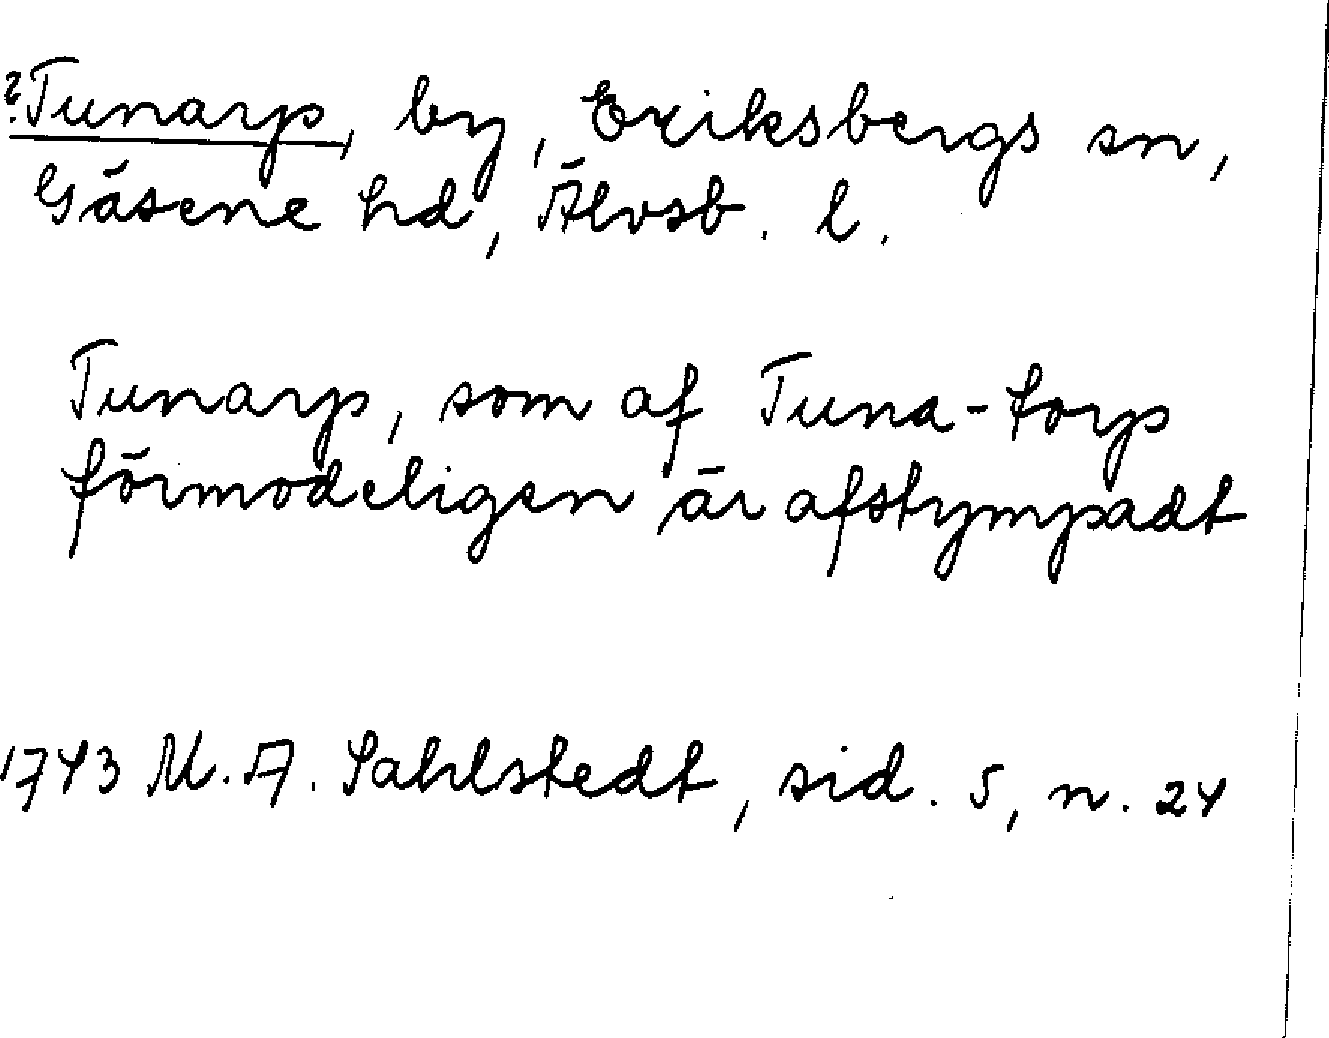 ?Tunarp, by, Eriksbergs sn,
Gäsene hd, Älvsb. l.
Tunarp, som af Tuna-torp
förmodeligen är afstympadt
1743 M. A. Sahlstedt, sid. 5, n. 24